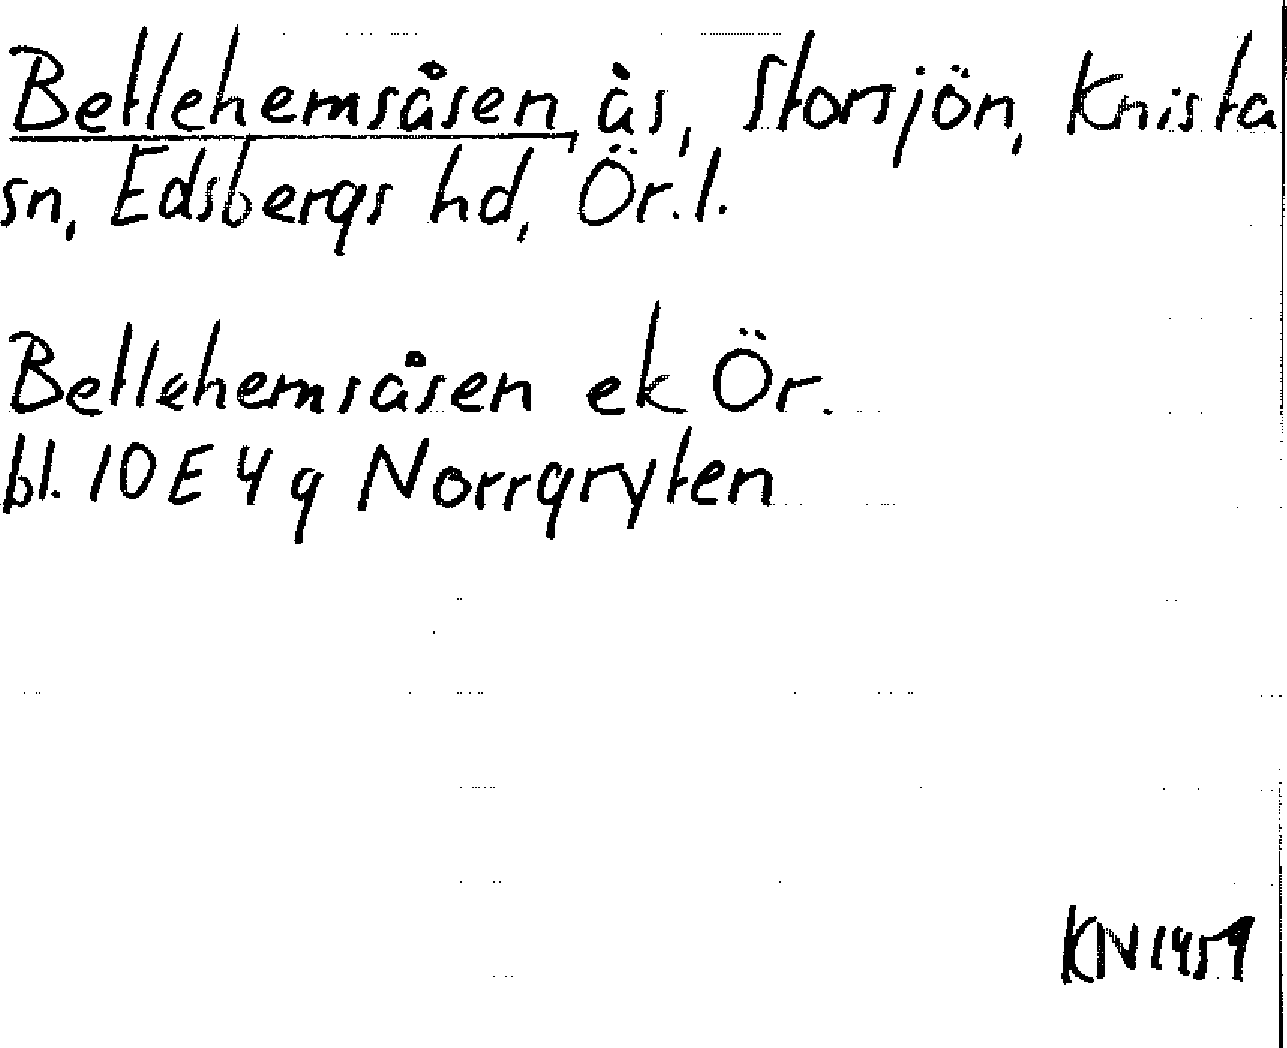 Betlehemsåsen, ås, Storsjön, Knista
sn, Edsbergs hd, Ör.l.
Betlehemsåsen ek Ör.
bl. 10 E 4 g Norrgryten